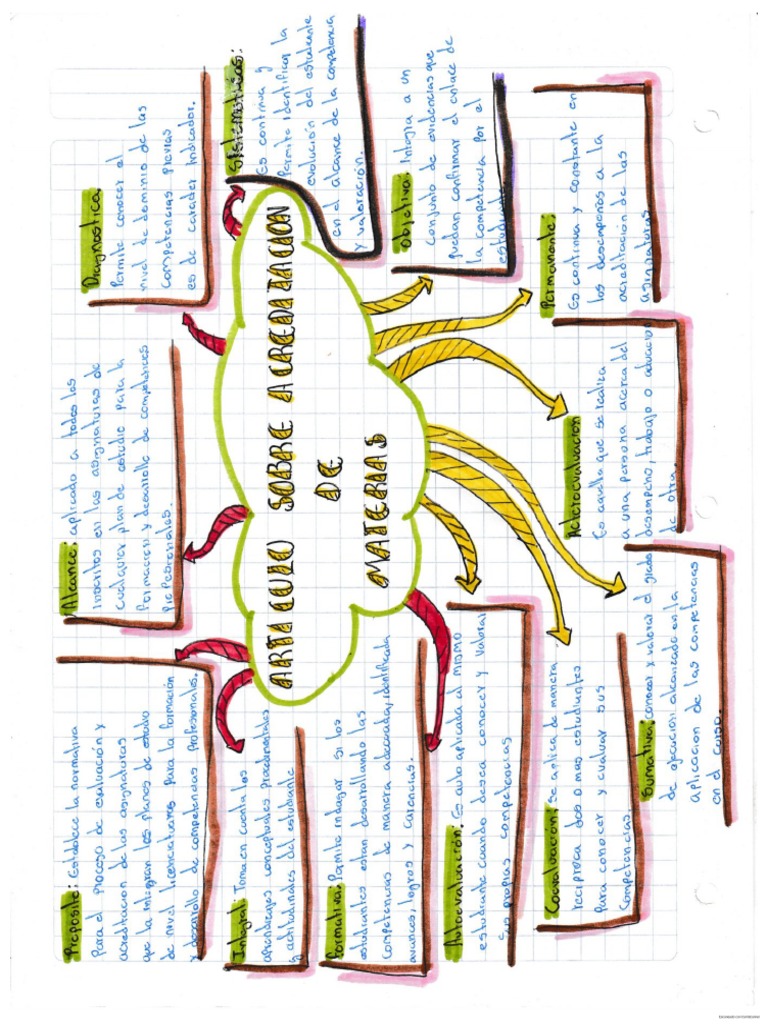 ARTICULO SOBRE ACREDITACION
DE
MATERIAS
Proposito: Establece la normativa
Para el proceso de evaluación y
acreditación de las asignaturas
que la integran los planes de estudio
de nivel licenciatura para la formación
y desarrollo de competencias profesionales.
Alcance: aplicado a todos los
inscritos en las asignaturas de
cualquier plan de estudio para la
formacion y desarrollo de competencias
Profesionales.
Diagnostica:
Permite conocer el
nivel de dominio de las
Competencias previas
es de caracter indicador.
Sistematicas:
Es continua y
Permite identificar la
evolución del estudiante
en el alcance de la competencia
y valoración.
Integral: Toma en cuenta los
aprendizajes conceptuales procedimentales
y actitudinales del estudiante
Formativa: Permite indagar si los
estudiantes estan desarrollando las
Competencias de manera adecuada, identificada
avances, logros y carencias.
Objetiva: Integra a un
conjunto de evidencias que
puedan confirmar el enlace de
la competencia por el
estudiante
Autoevaluación: Es auto aplicada al mismo
estudiante cuando desea conocer y valorar
Sus propias competencias
Permanente:
Es continua y constante en
los desempeños a la
acreditación de las
asignaturas
Coevaluación: se aplica de manera
reciproca dos o mas estudiantes
Para conocer y evaluar sus
Competencias.
Heteroevaluación
Es aquella que se realiza
a una persona acerca del
desempeño, trabajo o
de otra.
Sumativa: conocer y valorar el grado
de ejecución alcanzado en la
aplicacion de las competencias
en el curso.